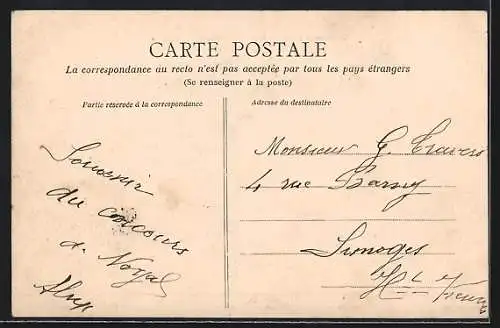 CARTE POSTALE
La correspondance au recto n'est pas acceptée par tous les pays étrangers
(Se renseigner à la poste)
Partie réservée à la correspondance
Souvenir
du concours
de Noyal
Adresse du destinataire
Monsieur G. Travers
4 rue Barny
Limoges
Hte Vienne